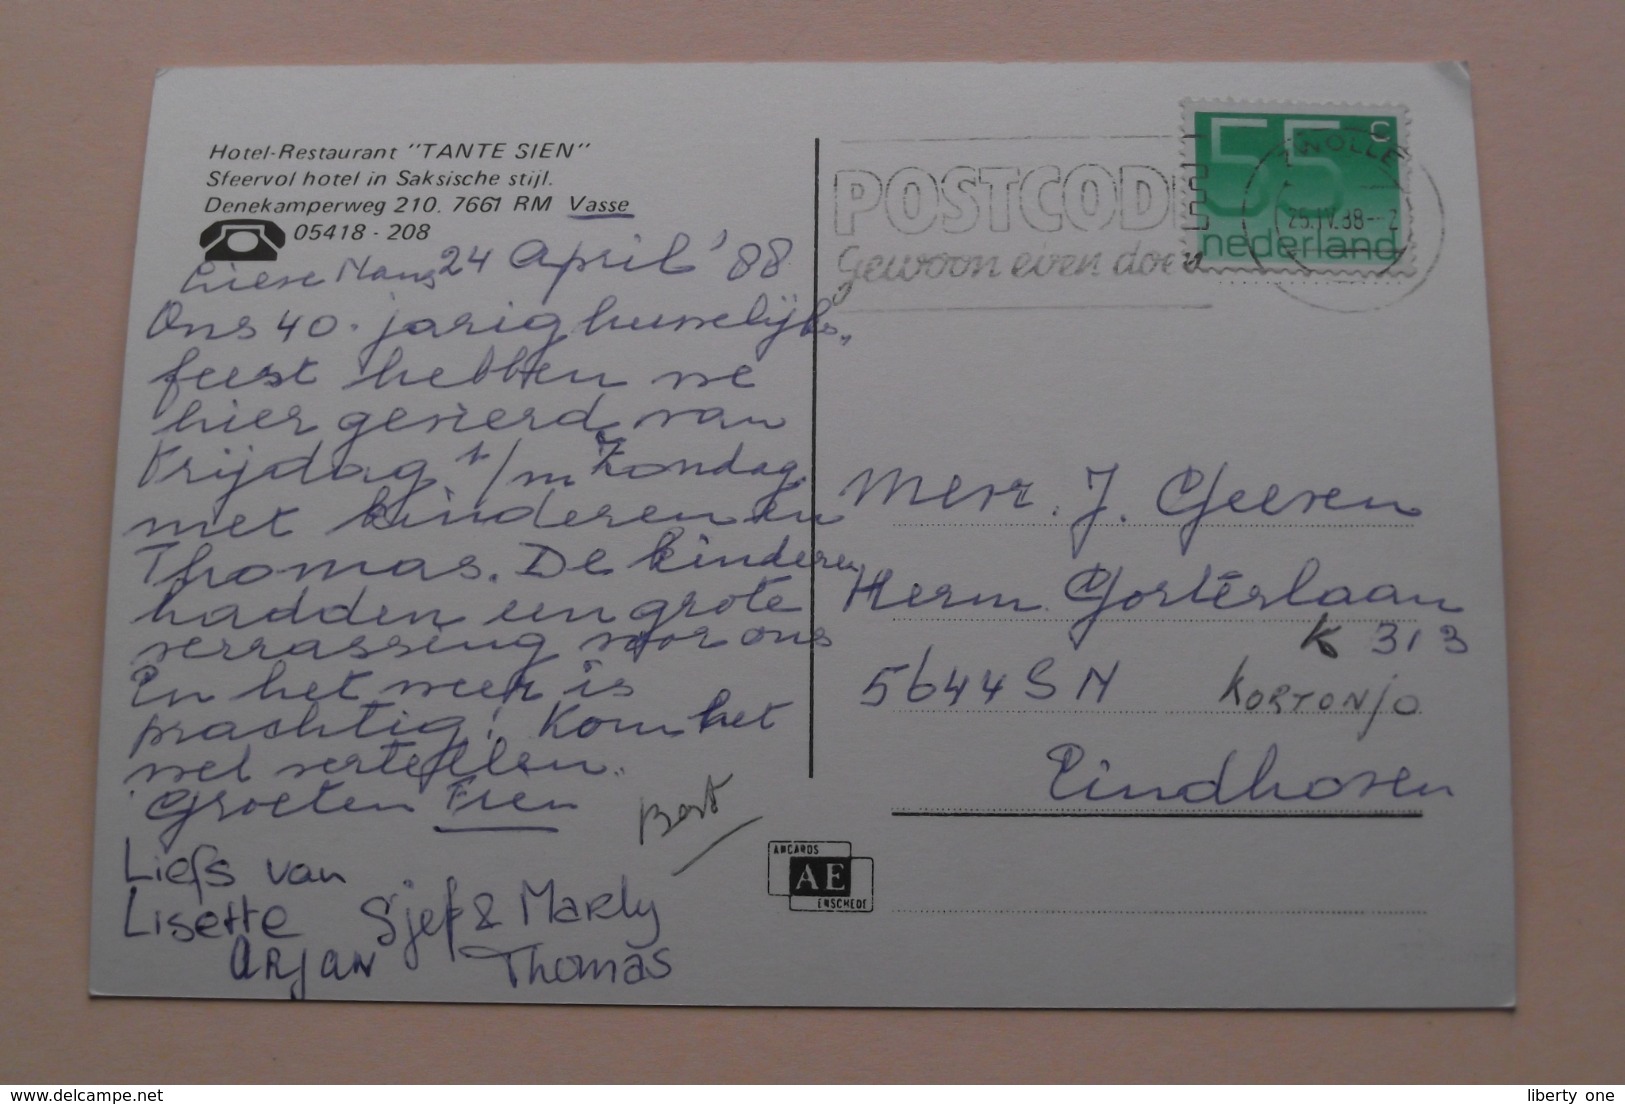 Hotel-Restaurant "TANTE SIEN"
Sfeervol hotel in Saksische stijl.
Denekamperweg 210. 7661 RM Vasse
05418 - 208
24 April '88
Liese Mans
Ons 40. jarig huwelijks,
feest hebben we
hier gevierd van
Vrijdag t/m Zondag
met kinderen en
Thomas. De kinderen
hadden een grote
verrassing voor ons
En het weer is
prachtig! Kom het
wel vertellen.
Groeten Fren
Bert
Liefs van
Lisette Sjef & Marly
Arjan Thomas
POSTCODE
gewoon even doen
55 c
nederland
ZWOLLE
25.IV.88
Mevr. J. Geeven
Herm. Gorterlaan
K 313
5644 SN KORTONJO
Eindhoven
AMCARDS
AE
ENSCHEDE
liberty one